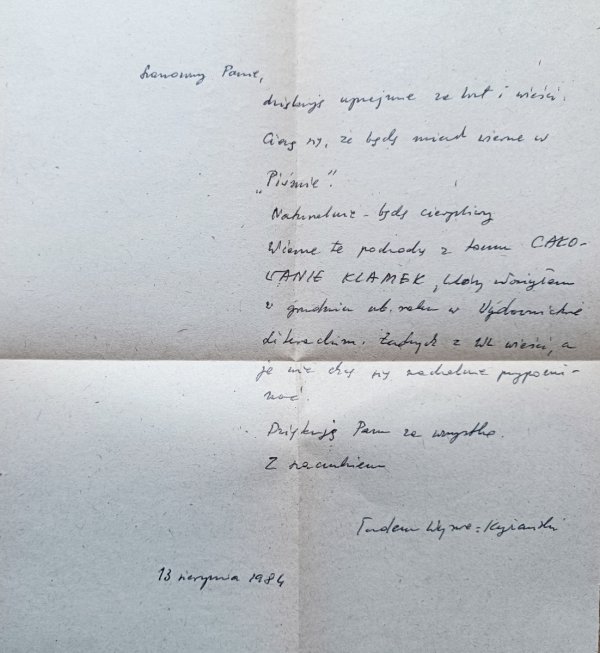 Szanowny Panie,
dziękuję uprzejmie za list i wieści.
Cieszę się, że będę miał wiersze w
„Piśmie”.
Naturalnie - będę cierpliwy
Wiersze te pochodzą z tomu CAŁO-
WANIE KLAMEK, który złożyłem
w grudniu ub. roku w Wydawnictwie
Literackim. Żadnych z WL wieści, a
ja nie chcę się nachalnie przypomi-
nać.
Dziękuję Panu za wszystko.
Z szacunkiem
Tadeusz Wyrwa-Krzyżański
13 sierpnia 1984